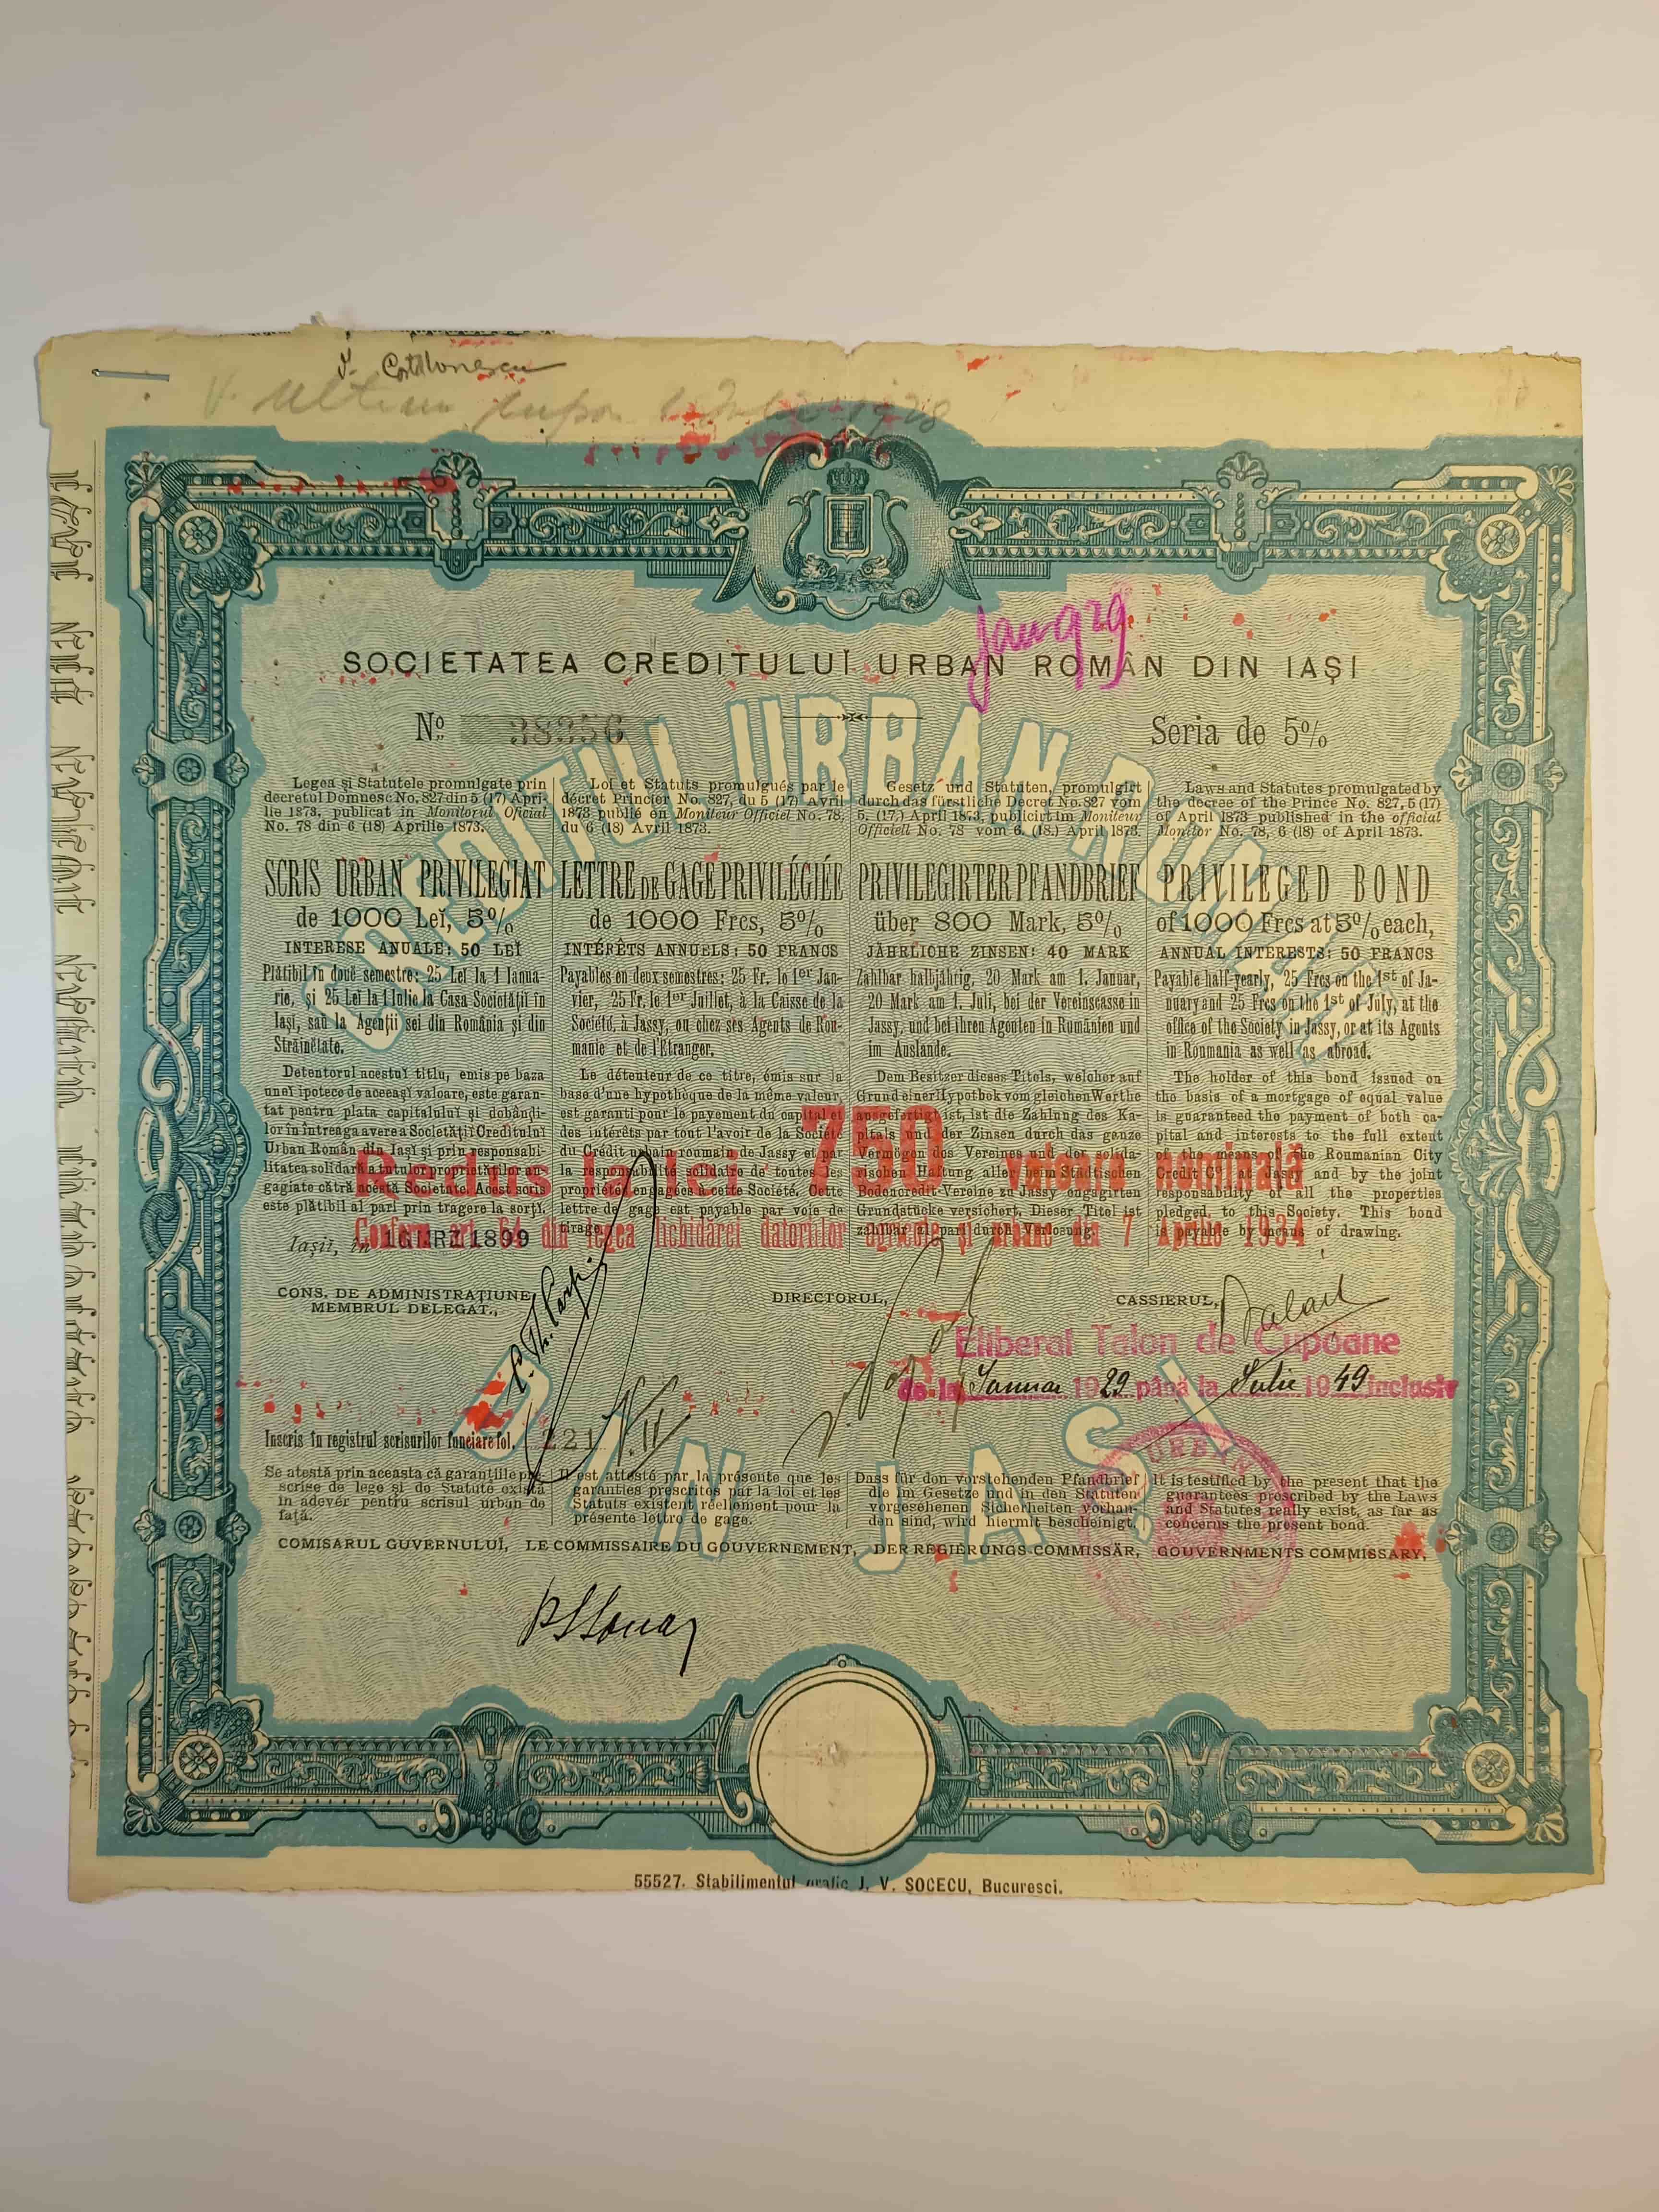 Ultim cupon 1928
Jan 929
SOCIETATEA CREDITULUĬ URBAN ROMÂN DIN IAŞI
No. 38356
Seria de 5%
CREDITUL URBAN ROMAN
DIN JAŞI
Legea şi Statutele promulgate prin
decretul Domnesc No. 827 din 5 (17) Apri-
lie 1873, publicat in Monitorul Oficial
No. 78 din 6 (18) Aprilie 1873.
SCRIS URBAN PRIVILEGIAT
de 1000 Leĭ, 5%
INTERESE ANUALE: 50 LEĬ
Plătibil în douĕ semestre: 25 Leĭ la 1 Ianua-
rie, şi 25 Leĭ la 1 Iulie la Casa Societăţiĭ în
Iaşĭ, saŭ la Agenţiĭ sei din România şi din
Străinĕtate.
Detentorul acestuĭ titlu, emis pe baza
uneĭ ipotece de aceeaşĭ valoare, este garan-
tat pentru plata capitaluluĭ şi dobândi-
lor în întreaga avere a Societăţiĭ Credituluĭ
Urban Român din Iaşĭ şi prin responsabi-
litatea solidară a tutulor proprietăţilor an-
gagiate cătră acéstă Societate. Acest scris
este plătibil al pari prin tragere la sorţĭ.
Loi et Statuts promulgués par le
décret Princier No. 827, du 5 (17) Avril
1873 publié en Moniteur Officiel No. 78,
du 6 (18) Avril 1873.
LETTRE DE GAGE PRIVILÉGIÉE
de 1000 Frcs, 5%
INTÉRÊTS ANNUELS: 50 FRANCS
Payables en deux semestres: 25 Fr. le 1er Jan-
vier, 25 Fr. le 1er Juillet, à la Caisse de la
Société, à Jassy, ou chez ses Agents de Rou-
manie et de l'Etranger.
Le détenteur de ce titre, émis sur la
base d'une hypothèque de la même valeur,
est garanti pour le payement du capital et
des intérêts par tout l'avoir de la Société
du Crédit urbain roumain de Jassy et par
la responsabilité solidaire de toutes les
propriétés engagées à cette Société. Cette
lettre de gage est payable par voie de
tirage.
Gesetz und Statuten, promulgirt
durch das fürstliche Decret No. 827 vom
5. (17.) April 1873, publicirt im Moniteur
Officiell No. 78 vom 6. (18.) April 1873.
PRIVILEGIRTER PFANDBRIEF
über 800 Mark, 5%
JÄHRLICHE ZINSEN: 40 MARK
Zahlbar halbjährig, 20 Mark am 1. Januar,
20 Mark am 1. Juli, bei der Vereinscasse in
Jassy, und bei ihren Agenten in Rumänien und
im Auslande.
Dem Besitzer dieses Titels, welcher auf
Grund einer Hypothek vom gleichen Werthe
ausgefertigt ist, ist die Zahlung des Ka-
pitals und der Zinsen durch das ganze
Vermögen des Vereines und der solida-
rischen Haftung aller beim Städtischen
Bodencredit-Vereine zu Jassy engagirten
Grundstücke versichert. Dieser Titel ist
zahlbar al pari durch Verlosung.
Laws and Statutes promulgated by
the decree of the Prince No. 827, 5 (17)
of April 1873 published in the official
Monitor No. 78, 6 (18) of April 1873.
PRIVILEGED BOND
of 1000 Frcs at 5% each,
ANNUAL INTERESTS: 50 FRANCS
Payable half-yearly, 25 Frcs on the 1st of Ja-
nuary and 25 Frcs on the 1st of July, at the
office of the Society in Jassy, or at its Agents
in Roumania as well as abroad.
The holder of this bond issued on
the basis of a mortgage of equal value
is guaranteed the payment of both ca-
pital and interests to the full extent
of the means of the Roumanian City
Credit Cy at Jassy and by the joint
responsability of all the properties
pledged to this Society. This bond
is payable by means of drawing.
Redus la lei 750 valoare nominală
Conform art. 64 din legea lichidărei datoriilor agricole şi urbane din 7 Aprilie 1934
Iaşiĭ, în 1899
CONS. DE ADMINISTRAŢIUNE
MEMBRUL DELEGAT.,
DIRECTORUL,
CASSIERUL,
Eliberat Talon de Cupoane
de la Ianuar 1929 până la Iulie 1949 inclusiv
Inscris în registrul scrisurilor funciare fol. 221 V.II
URBAN
Se atestă prin aceasta că garanţiile pre-
scrise de lege şi de Statute exista
in adevĕr pentru scrisul urban de
faţă.
Il est attesté par la présente que les
garanties prescrites par la loi et les
Statuts existent réellement pour la
présente lettre de gage.
Dass für den vorstehenden Pfandbrief
die im Gesetze und in den Statuten
vorgesehenen Sicherheiten vorhan-
den sind, wird hiermit bescheinigt.
It is testified by the present that the
guarantees prescribed by the Laws
and Statutes really exist, as far as
concerns the present bond.
COMISARUL GUVERNULUĬ,
LE COMMISSAIRE DU GOUVERNEMENT,
DER REGIERUNGS-COMMISSÄR,
GOUVERNMENTS COMMISSARY,
55527. Stabilimentul grafic J. V. SOCECU, Bucuresci.